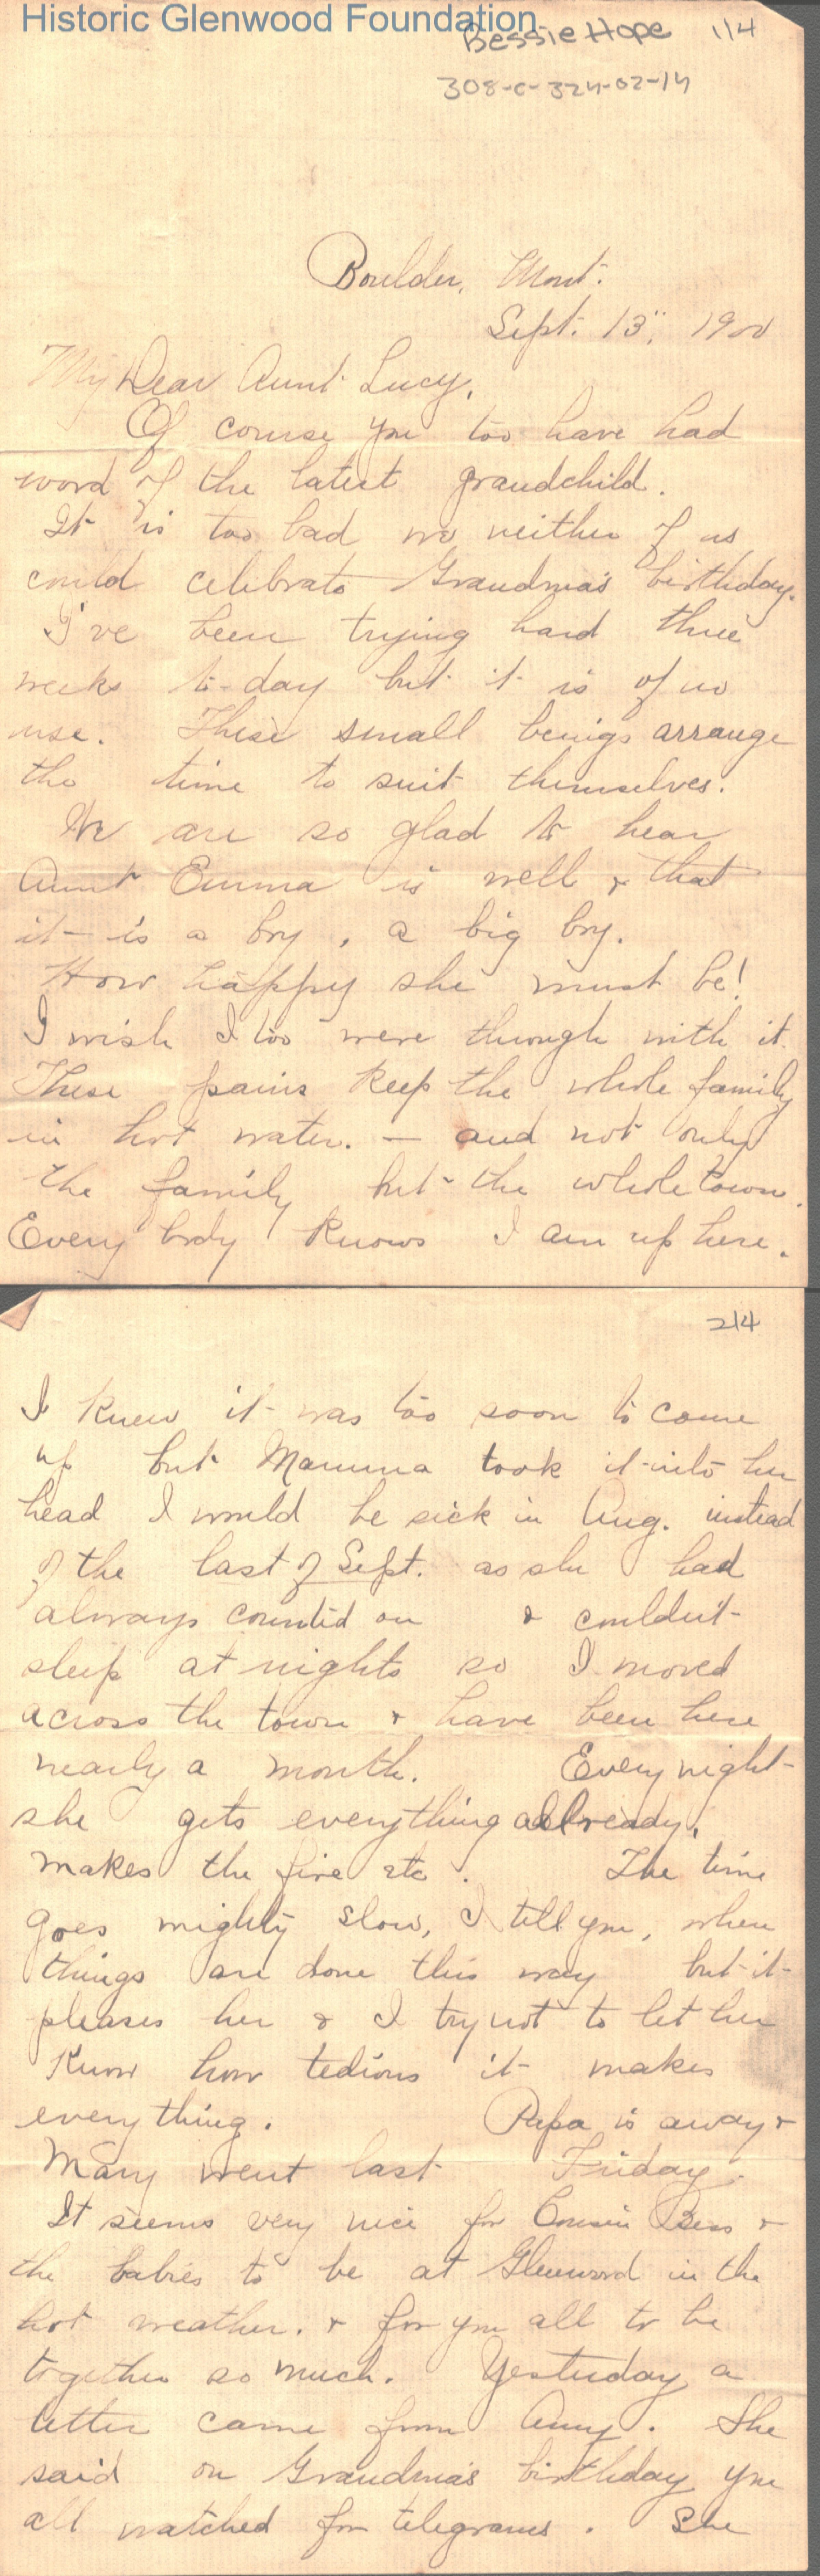 Historic Glenwood Foundation
Bessie Hope 1/4
308-c-324-02-14
Boulder, Mont.
Sept. 13", 1900
My Dear Aunt Lucy,
Of course you too have had
word of the latest grandchild.
It is too bad we neither of us
could celebrate Grandma's birthday.
I've been trying hard three
weeks to-day but it is of no
use. These small beings arrange
the time to suit themselves.
We are so glad to hear
Aunt Emma is well & that
it is a boy, a big boy.
How happy she must be!
I wish I too were through with it.
These pains keep the whole family
in hot water. — and not only
the family but the whole town.
Every body knows I am up here.
2/4
I knew it was too soon to come
up but Mamma took it into her
head I would be sick in Aug. instead
of the last of Sept. as she had
always counted on & couldn't
sleep at nights so I moved
across the town & have been here
nearly a month. Every night
she gets everything all ready,
makes the fire etc. The time
goes mighty slow, I tell you, when
things are done this way but it
pleases her & I try not to let her
know how tedious it makes
everything. Papa is away &
Mary went last Friday.
It seems very nice for Cousin Bess &
the babies to be at Glenwood in the
hot weather. & for you all to be
together so much. Yesterday a
letter came from Amy. She
said on Grandma's birthday you
all watched for telegrams. She